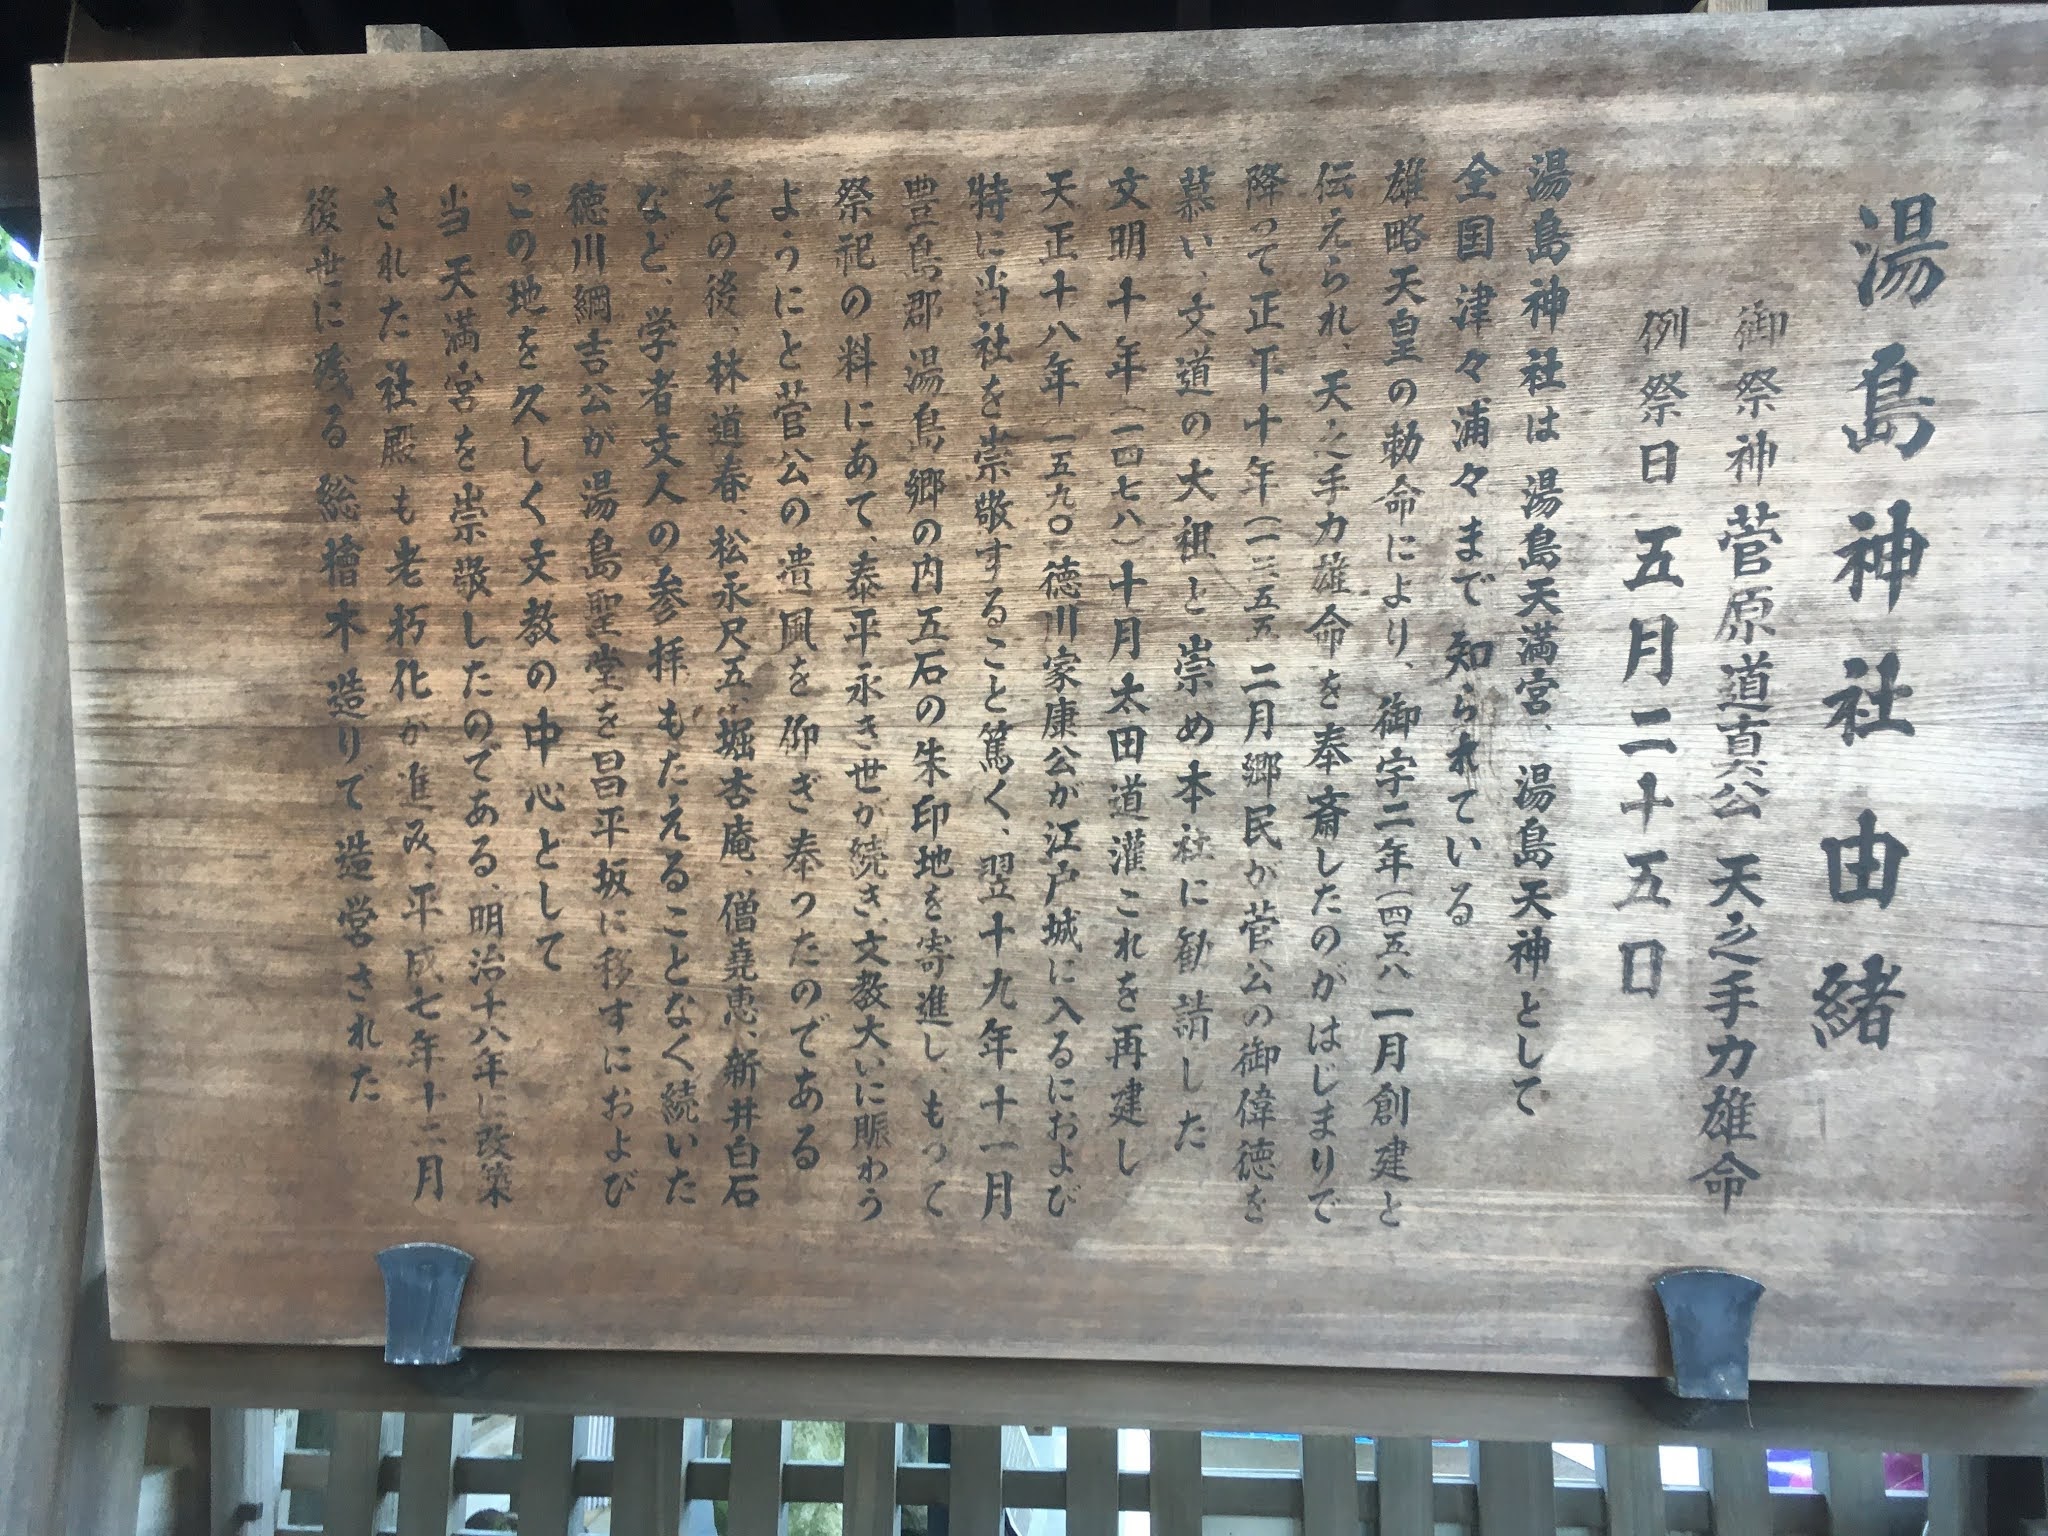 湯島神社由緒
御祭神 菅原道真公 天之手力雄命
例祭日 五月二十五日
湯島神社は湯島天満宮、湯島天神として
全国津々浦々まで知られている
雄略天皇の勅命により、御宇二年(四五八 一月創建と
伝えられ、天之手力雄命を奉斎したのがはじまりで
降って正平十年(一三五五 二月郷民が菅公の御偉徳を
慕い、文道の大祖と崇め本社に勧請した
文明十年(一四七八)十月太田道灌これを再建し
天正十八年(一五九〇 徳川家康公が江戸城に入るにおよび
特に当社を崇敬すること篤く、翌十九年十一月
豊島郡湯島郷の内五石の朱印地を寄進し、もって
祭祀の料にあて、泰平永き世が続き、文教大いに賑わう
ようにと菅公の遺風を仰ぎ奉ったのである
その後、林道春、松永尺五、堀杏庵、僧堯恵、新井白石
など、学者文人の参拝もたえることなく続いた
徳川綱吉公が湯島聖堂を昌平坂に移すにおよび
この地を久しく文教の中心として
当天満宮を崇敬したのである、明治十八年に改築
された社殿も老朽化が進み、平成七年十二月
後世に残る総檜木造りで造営された